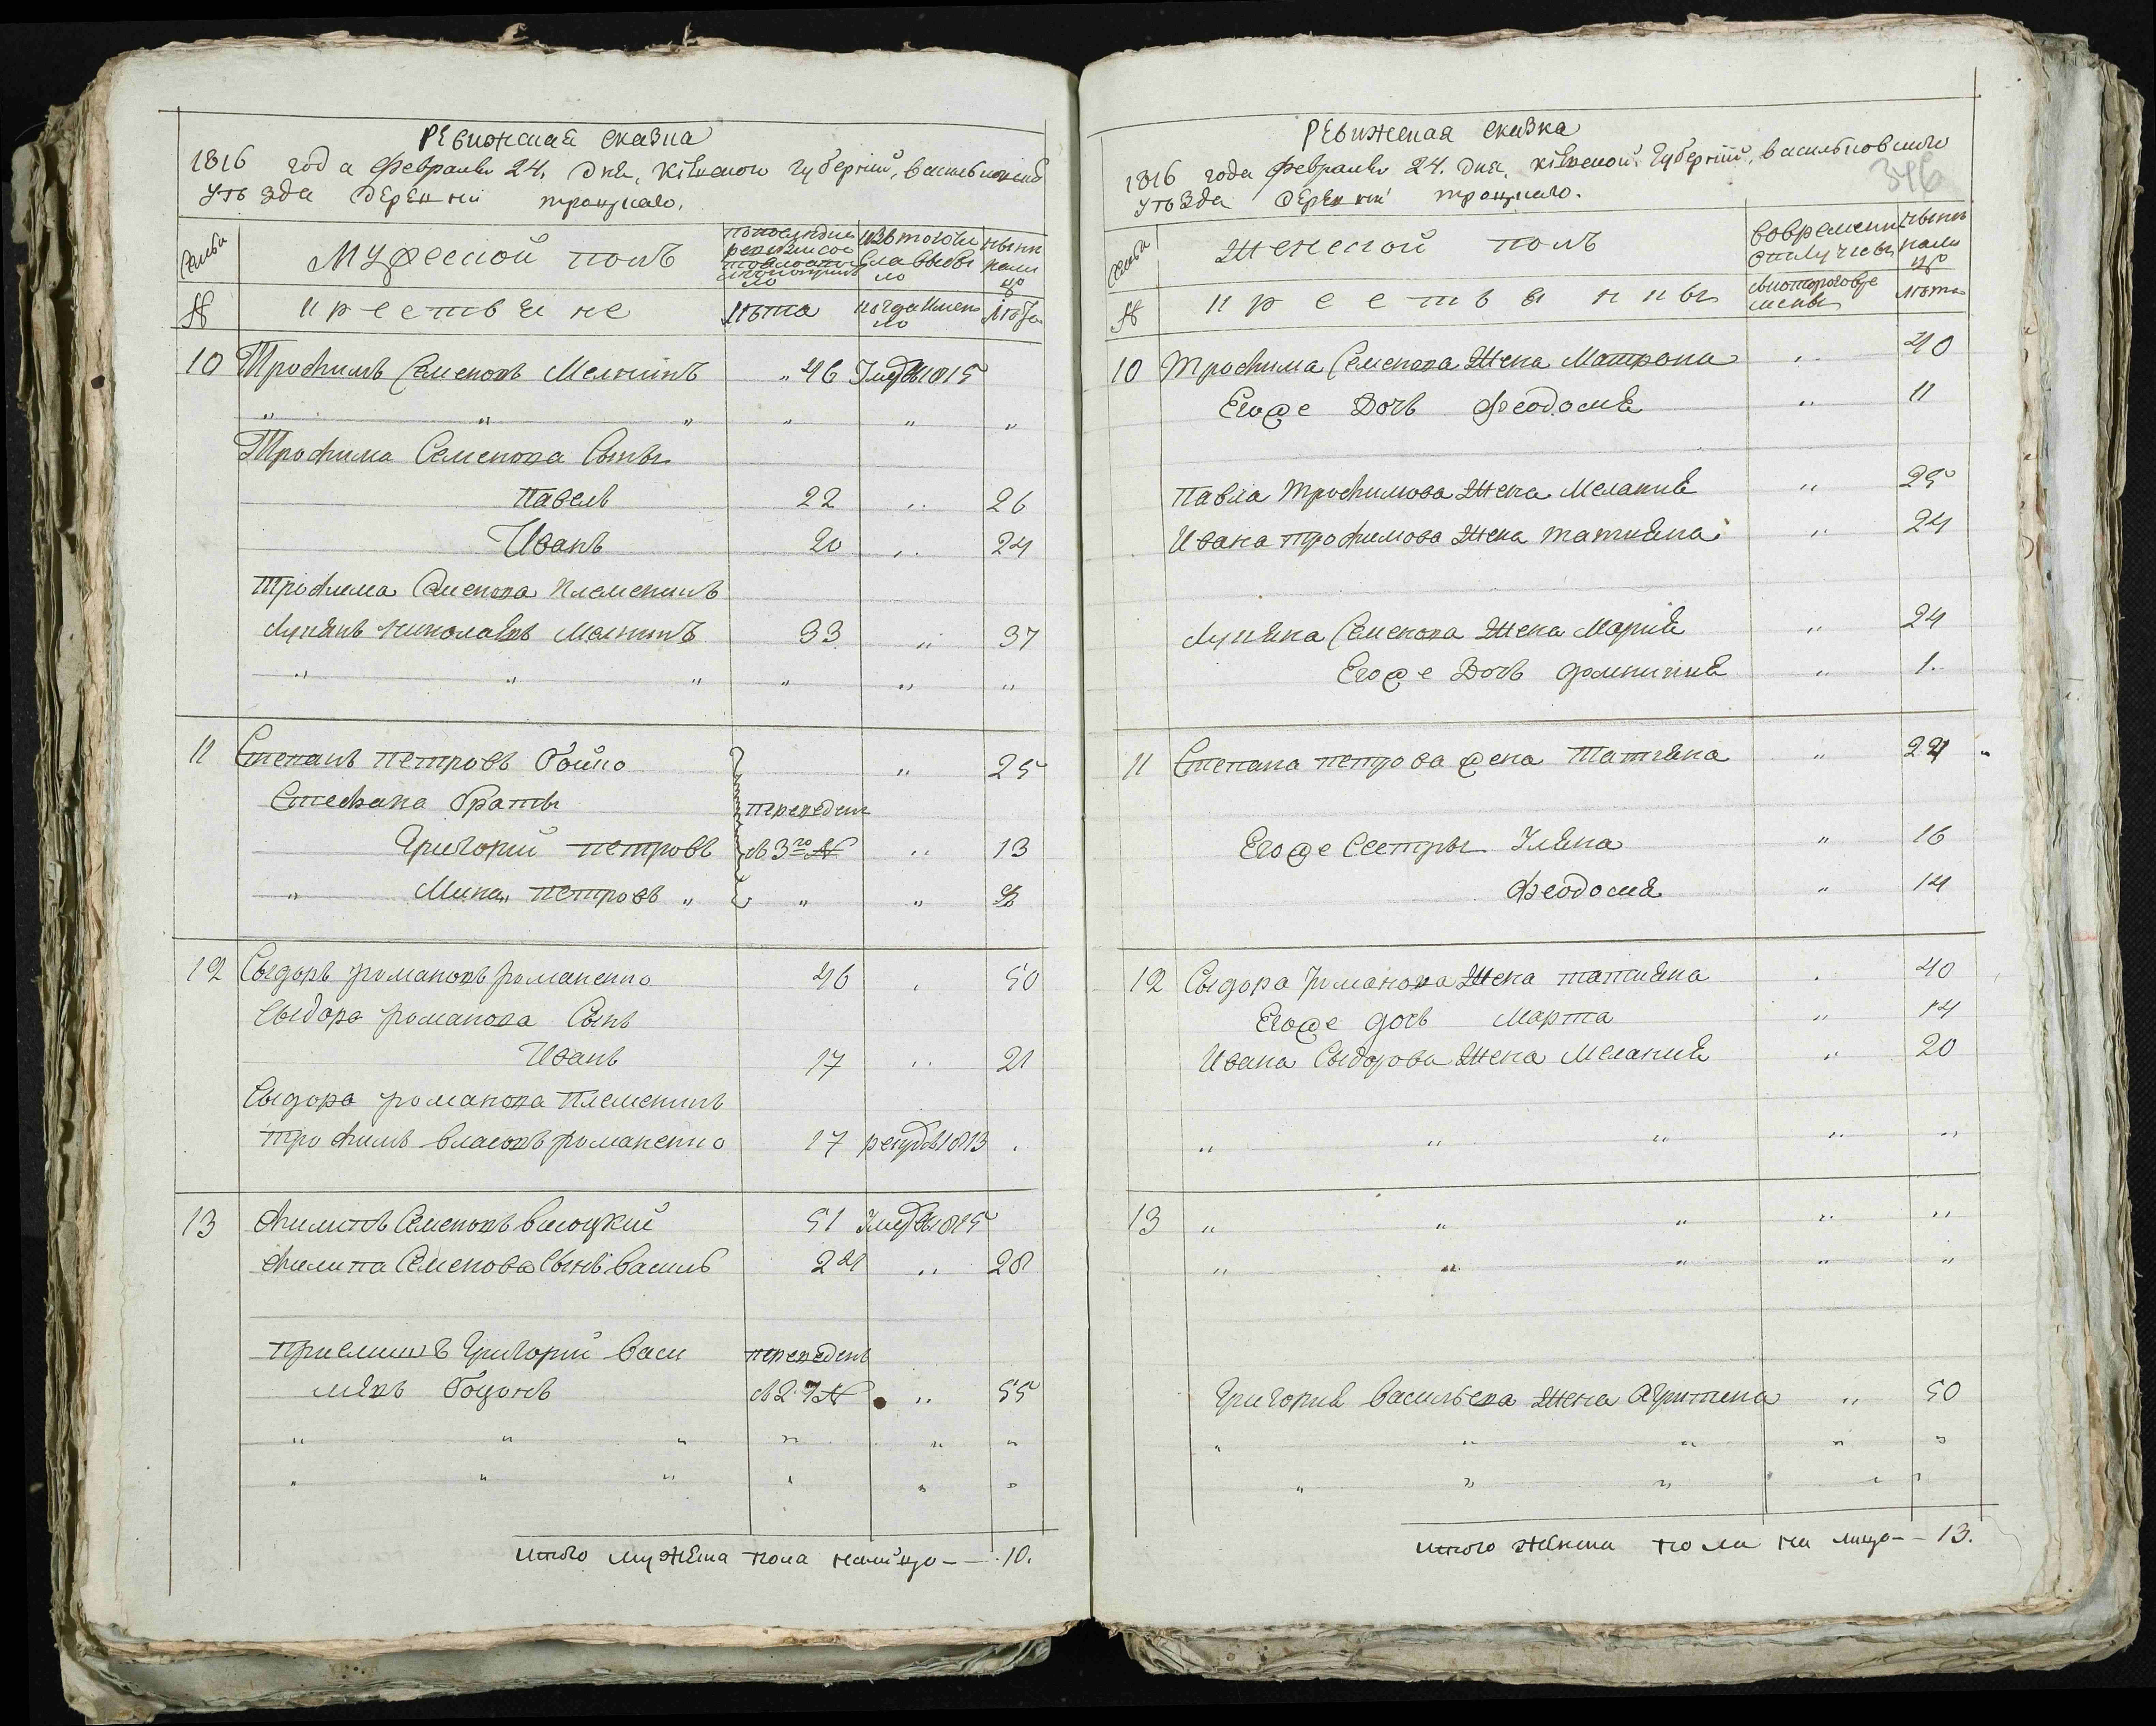 Ревижская сказка
1816 года Февраля 24. дня, Кіевской Губерніи, васильковскаго
Уѣзда дЕрЕвни троцкаго.
Семьи
Мужеской полъ
по последней ревизіи состояло
изъ того числа выбыло
ныне на лицо
№
крестьяне
лѣта
когда именно
лѣта
10 Трофимъ Семеновъ Мельникъ „ 46 Умеръ 1815
„ „ „ „ „ „
Трофима Семенова Сыны
Павелъ 22 „ 26
Иванъ 20 „ 24
Трофима Семенова племенникъ
Лукьянъ Николаевъ Мельникъ 33 „ 37
„ „ „ „ „ „
11 Степанъ петровъ Бойко „ 25
Стефана браты переведенъ
Григорий петровъ съ 3го № „ 13
„ Мина „ петровъ „ „ „
12 Сыдоръ романовъ романенко 46 „ 50
Сыдора романова Сынъ
Иванъ 17 „ 21
Сыдора романова племенникъ
Трофимъ власовъ романенко 17 рекрут 1813 .
13 Филипъ Семеновъ высоцкий 51 Умеръ 1815
Филипа Семенова Сынъ василь 24 „ 28
Приемышъ Григорий васи переведенъ
льевъ съ 27 № „ 55
„ „ „ „ „ „
„ „ „ „ „ „
итого мужеска пола налицо — 10.
Ревижская сказка
346
1816 года Февраля 24. дня, Кіевской Губерніи, васильковскаго
Уѣзда дЕрЕвни троцкаго.
Семьи
Женеской полъ
вовременной отлучкѣ
ныне на лицо
№
крестьянки
съ которого времены
лѣта
10 Трофима Семенова Жена Матрона „ 40
Егоже Дочь Феодосия „ 11
Павла Трофимова Жена Мелания „ 25
Ивана трофимова Жена татияна „ 24
Лукьяна Семенова Жена Мария „ 24
Егоже Дочь домникия „ 1.
11 Степана петрова жена Татияна „ 24 „
Егоже Сестры Уляна „ 16
Феодосия „ 14
12 Сыдора романова Жена татияна „ 40
Егоже дочь Марта „ 14
Ивана Сыдорова Жена Мелания „ 20
„ „ „ „ „
13 „ „ „ „ „
„ „ „ „ „
Григория васильева Жена Агрипина „ 50
„ „ „ „ „
„ „ „ „ „
итого женска пола на лицо — 13.